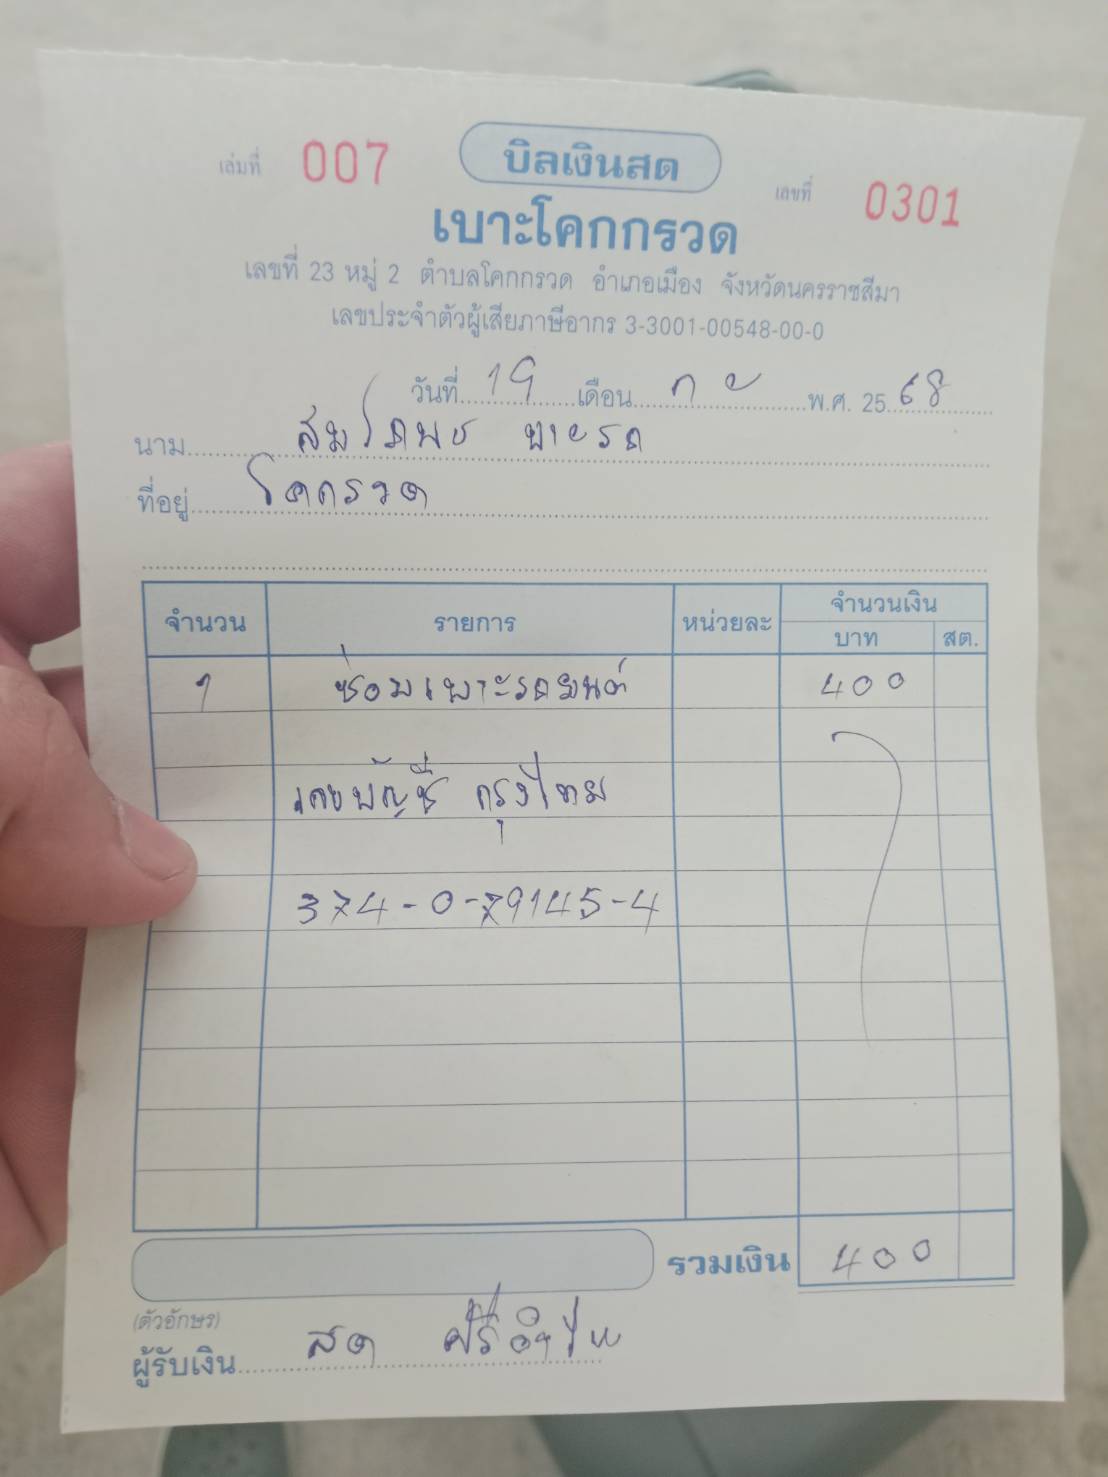 เล่มที่ 007 บิลเงินสด เลขที่ 0301
เบาะโคกกรวด
เลขที่ 23 หมู่ 2 ตำบลโคกกรวด อำเภอเมือง จังหวัดนครราชสีมา
เลขประจำตัวผู้เสียภาษีอากร 3-3001-00548-00-0
วันที่ 19 เดือน พ.ศ. 2568
นาม สมโภชน์
ที่อยู่ โคกรวด
จำนวน รายการ หน่วยละ จำนวนเงิน
บาท สต.
1 ซ่อมเบาะรถยนต์ 400
เลขบัญชี กรุงไทย
374-0-79145-4
รวมเงิน 400
(ตัวอักษร)
ผู้รับเงิน สด